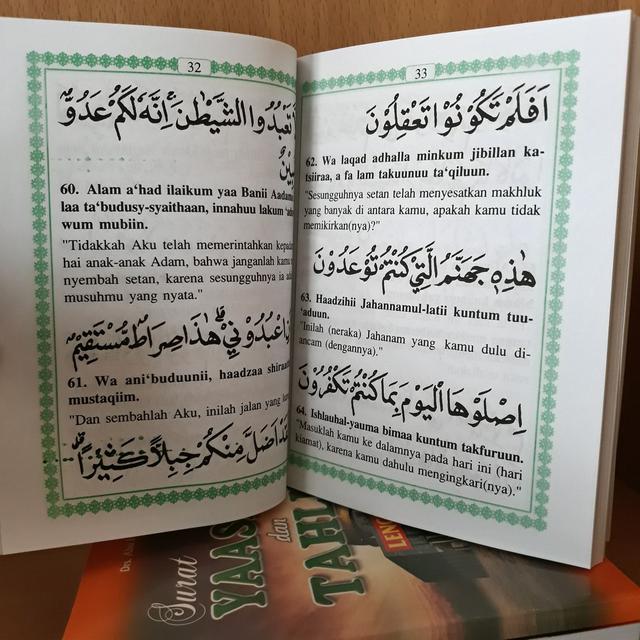 32
تَعْبُدُوا الشَّيْطٰنَ اِنَّهٗ لَكُمْ عَدُوٌّ
60. Alam a'had ilaikum yaa Banii Aadama
laa ta'budusy-syaithaan, innahuu lakum
wum mubiin.
"Tidakkah Aku telah memerintahkan kepada
hai anak-anak Adam, bahwa janganlah kamu
nyembah setan, karena sesungguhnya ia
musuhmu yang nyata."
اعْبُدُوْنِيْ هٰذَا صِرَاطٌ مُّسْتَقِيْمٌ
61. Wa ani'buduunii, haadzaa
mustaqiim.
"Dan sembahlah Aku, inilah jalan yang
اَضَلَّ مِنْكُمْ جِبِلًّا كَثِيْرًا
33
اَفَلَمْ تَكُوْنُوْا تَعْقِلُوْنَ
62. Wa laqad adhalla minkum jibillan ka-
tsiiraa, a fa lam takuunuu ta'qiluun.
"Sesungguhnya setan telah menyesatkan makhluk
yang banyak di antara kamu, apakah kamu tidak
memikirkan(nya)?"
هٰذِهٖ جَهَنَّمُ الَّتِيْ كُنْتُمْ تُوْعَدُوْنَ
63. Haadzihii Jahannamul-latii kuntum tuu-
'aduun.
"Inilah (neraka) Jahanam yang kamu dulu di-
ancam (dengannya)."
اِصْلَوْهَا الْيَوْمَ بِمَا كُنْتُمْ تَكْفُرُوْنَ
64. Ishlauhal-yauma bimaa kuntum takfuruun.
"Masuklah kamu ke dalamnya pada hari ini (hari
kiamat), karena kamu dahulu mengingkari(nya)."
Drs.
Surat
YAAS
dan
TAHL
LEN